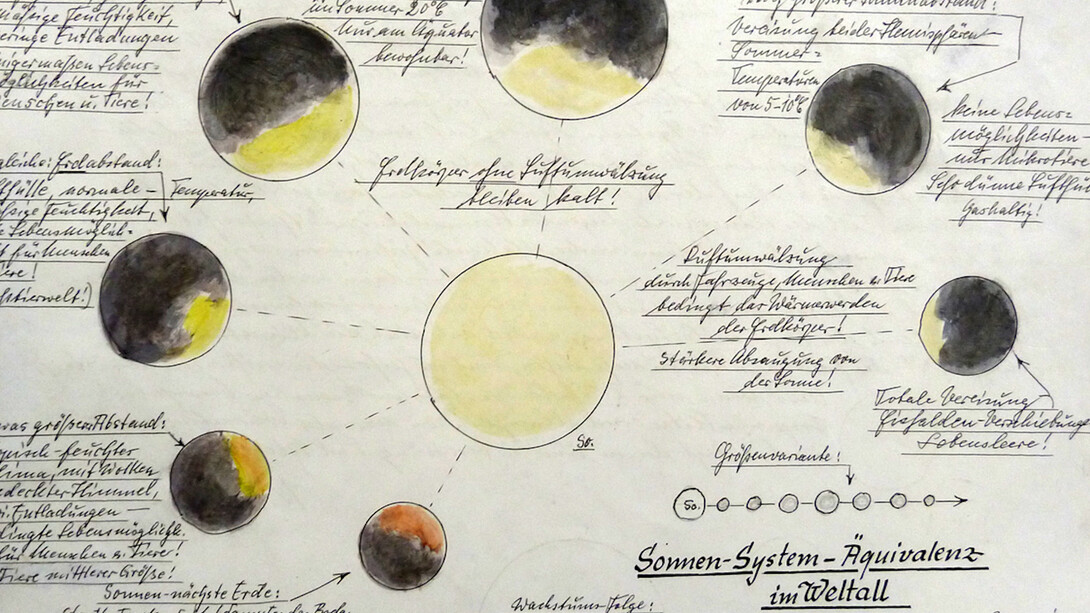 mäßige Feuchtigkeit,
geringe Entladungen
Menschen u. Tiere!
im Sommer 20°C
Nur am Äquator
bewohnbar!
Vereisung beider Hemisphären
Sommer-
Temperaturen
von 5-10°C
keine Lebens-
möglichkeiten
nur Mikrotiere
Sehr dünne Lufthü
Gashaltig!
gleiche: Erdabstand:
normale-
Temperatur,
Feuchtigkeit,
Lebensmöglich-
für Menschen
Erdkörper ohne Luftumwälzung
bleiben kalt!
Luftumwälzung
durch Fahrzeuge, Menschen u. Tiere
bedingt das Wärmerwerden
der Erdkörper!
Stärkere Absaugung von
der Sonne!
Totale Vereisung
Eisfelden-Verschiebung
Lebensleere!
So.
was größerer Abstand:
feuchter
Klima, mit Wolken
bedeckter Himmel,
Entladungen-
bedingte Lebensmöglichk.
für Menschen u. Tiere!
Tiere mittlerer Größe!
Sonnen-nächste Erde:
Größenvariante:
So.
Sonnen-System-Äquivalenz
im Weltall
Wachstums-Folge: